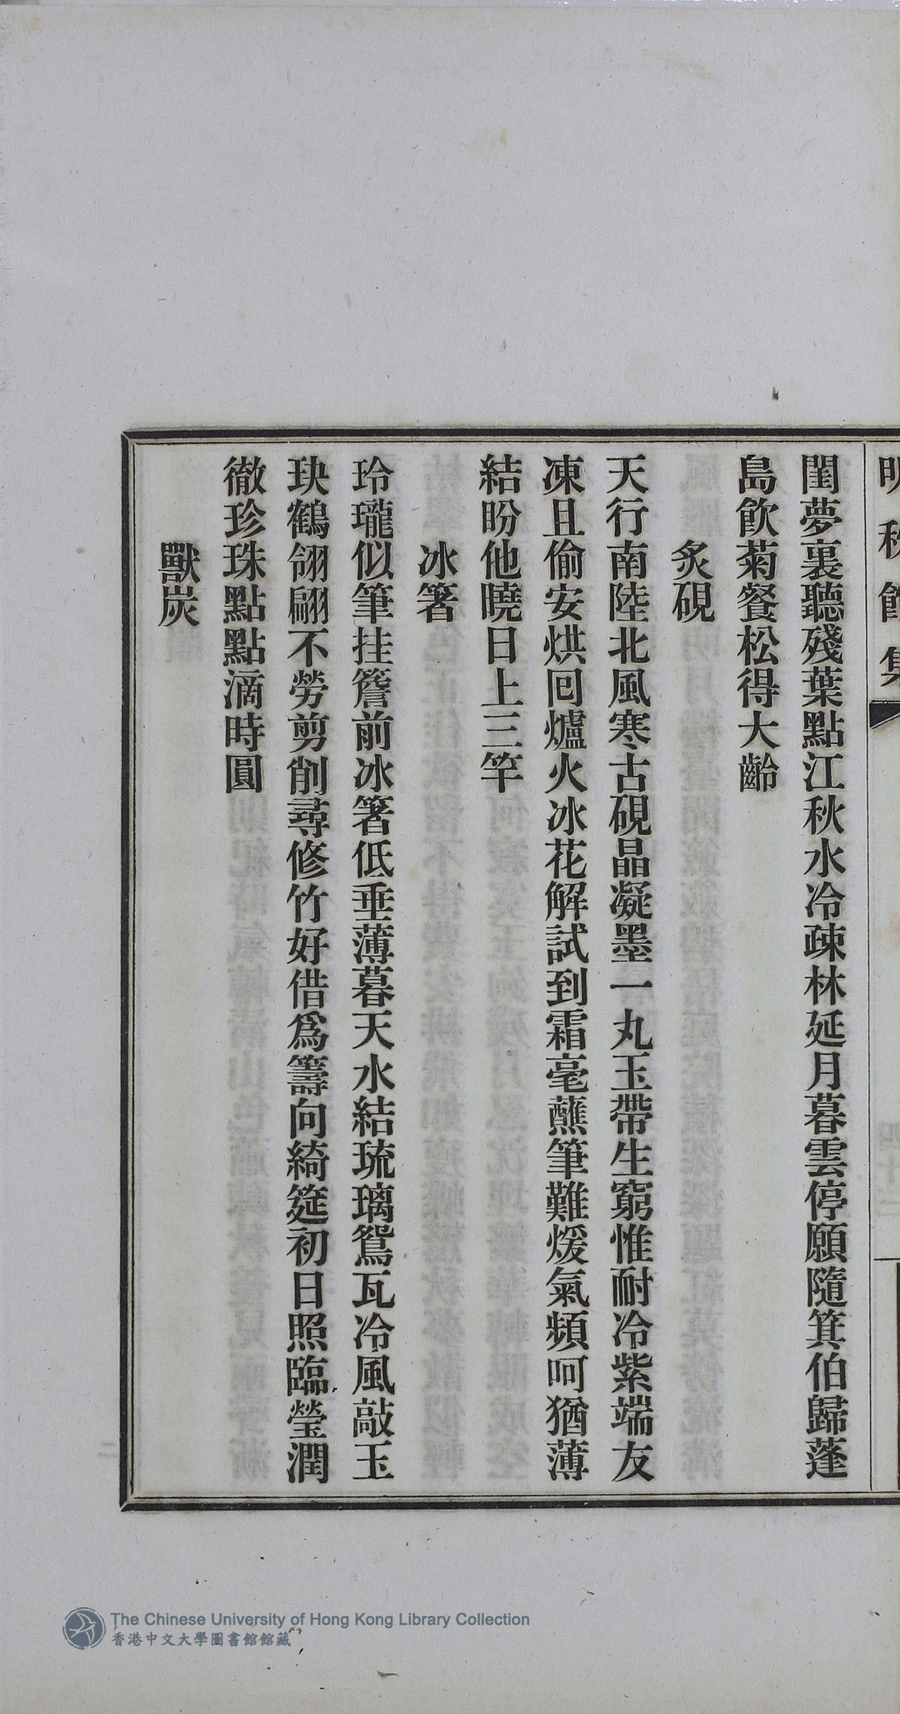 明秋館集
閨夢裏聽殘葉點江秋水冷疎林延月暮雲停願隨箕伯歸蓬
島飲菊餐松得大齡
炙硯
天行南陸北風寒古硯晶凝墨一丸玉帶生窮惟耐冷紫端友
凍且偷安烘囘爐火冰花解試到霜毫蘸筆難煖氣頻呵猶薄
結盼他曉日上三竿
冰箸
玲瓏似筆挂簷前冰箸低垂薄暮天水結琉璃鴛瓦冷風敲玉
玦鶴翎翩不勞剪削尋修竹好借爲籌向綺筵初日照臨瑩潤
徹珍珠點點滴時圓
獸炭
The Chinese University of Hong Kong Library Collection
香港中文大學圖書館館藏